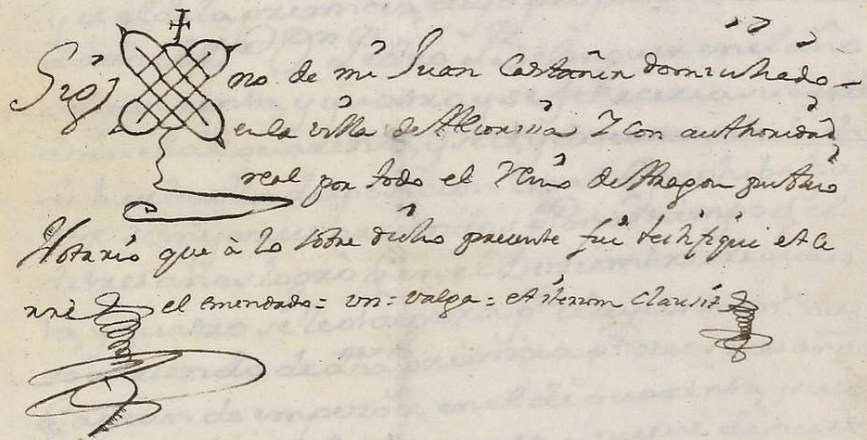 Sig no de mi Juan Castañer domiciliado
en la villa de Alcorissa y con authoridad
real por todo el Reino de Aragon publico
Notario que à lo sobre dicho presente fui testifiqui et ce
rrè el emendado = un = valga = et iterum clausi